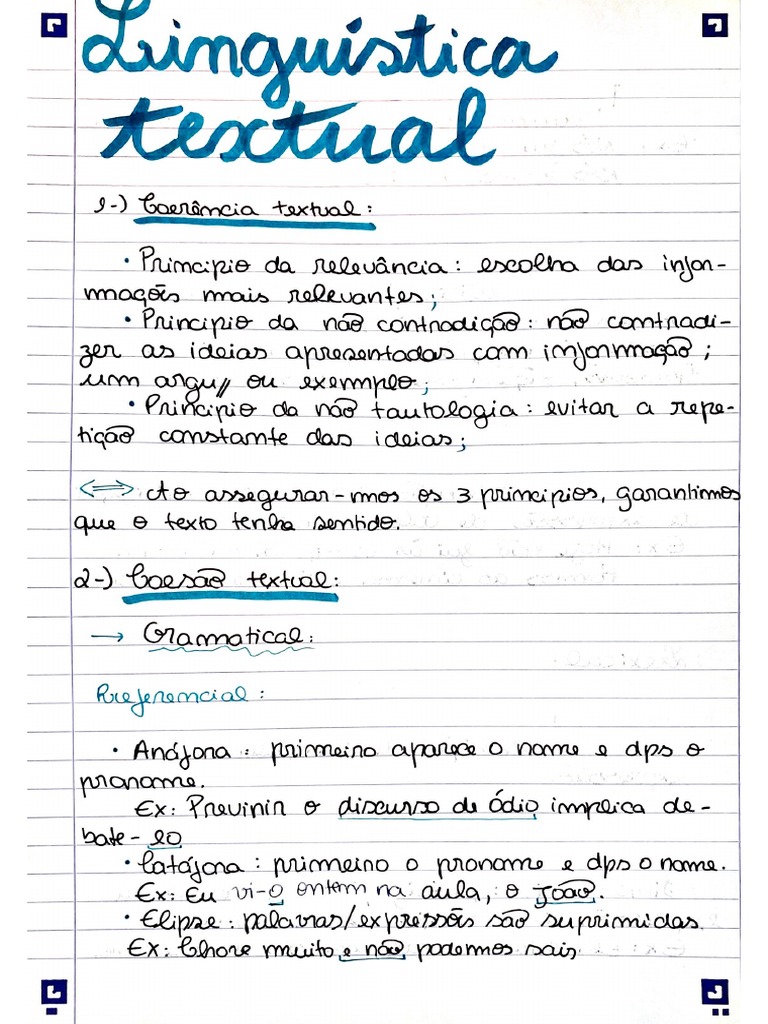 Linguística
textual
1-) Coerência textual:
• Principio da relevância: escolha das infor-
mações mais relevantes;
• Principio da não contradição: não contradi-
zer as ideias apresentadas com informação;
um argu// ou exemplo;
• Principio da não tautologia: evitar a repe-
tição constante das ideias;
⟺ Ao assegurar-mos os 3 principios, garantimos
que o texto tenha sentido.
2-) Coesão textual:
→ Gramatical:
Referencial:
• Anáfora: primeiro aparece o nome e dps o
pronome.
Ex: Previnir o discurso de ódio implica de-
bate-lo
• Catáfora: primeiro o pronome e dps o nome.
Ex: Eu vi-o ontem na aula, o João.
• Elipse: palavras/expressões são suprimidas.
Ex: Chove muito e não podemos sais